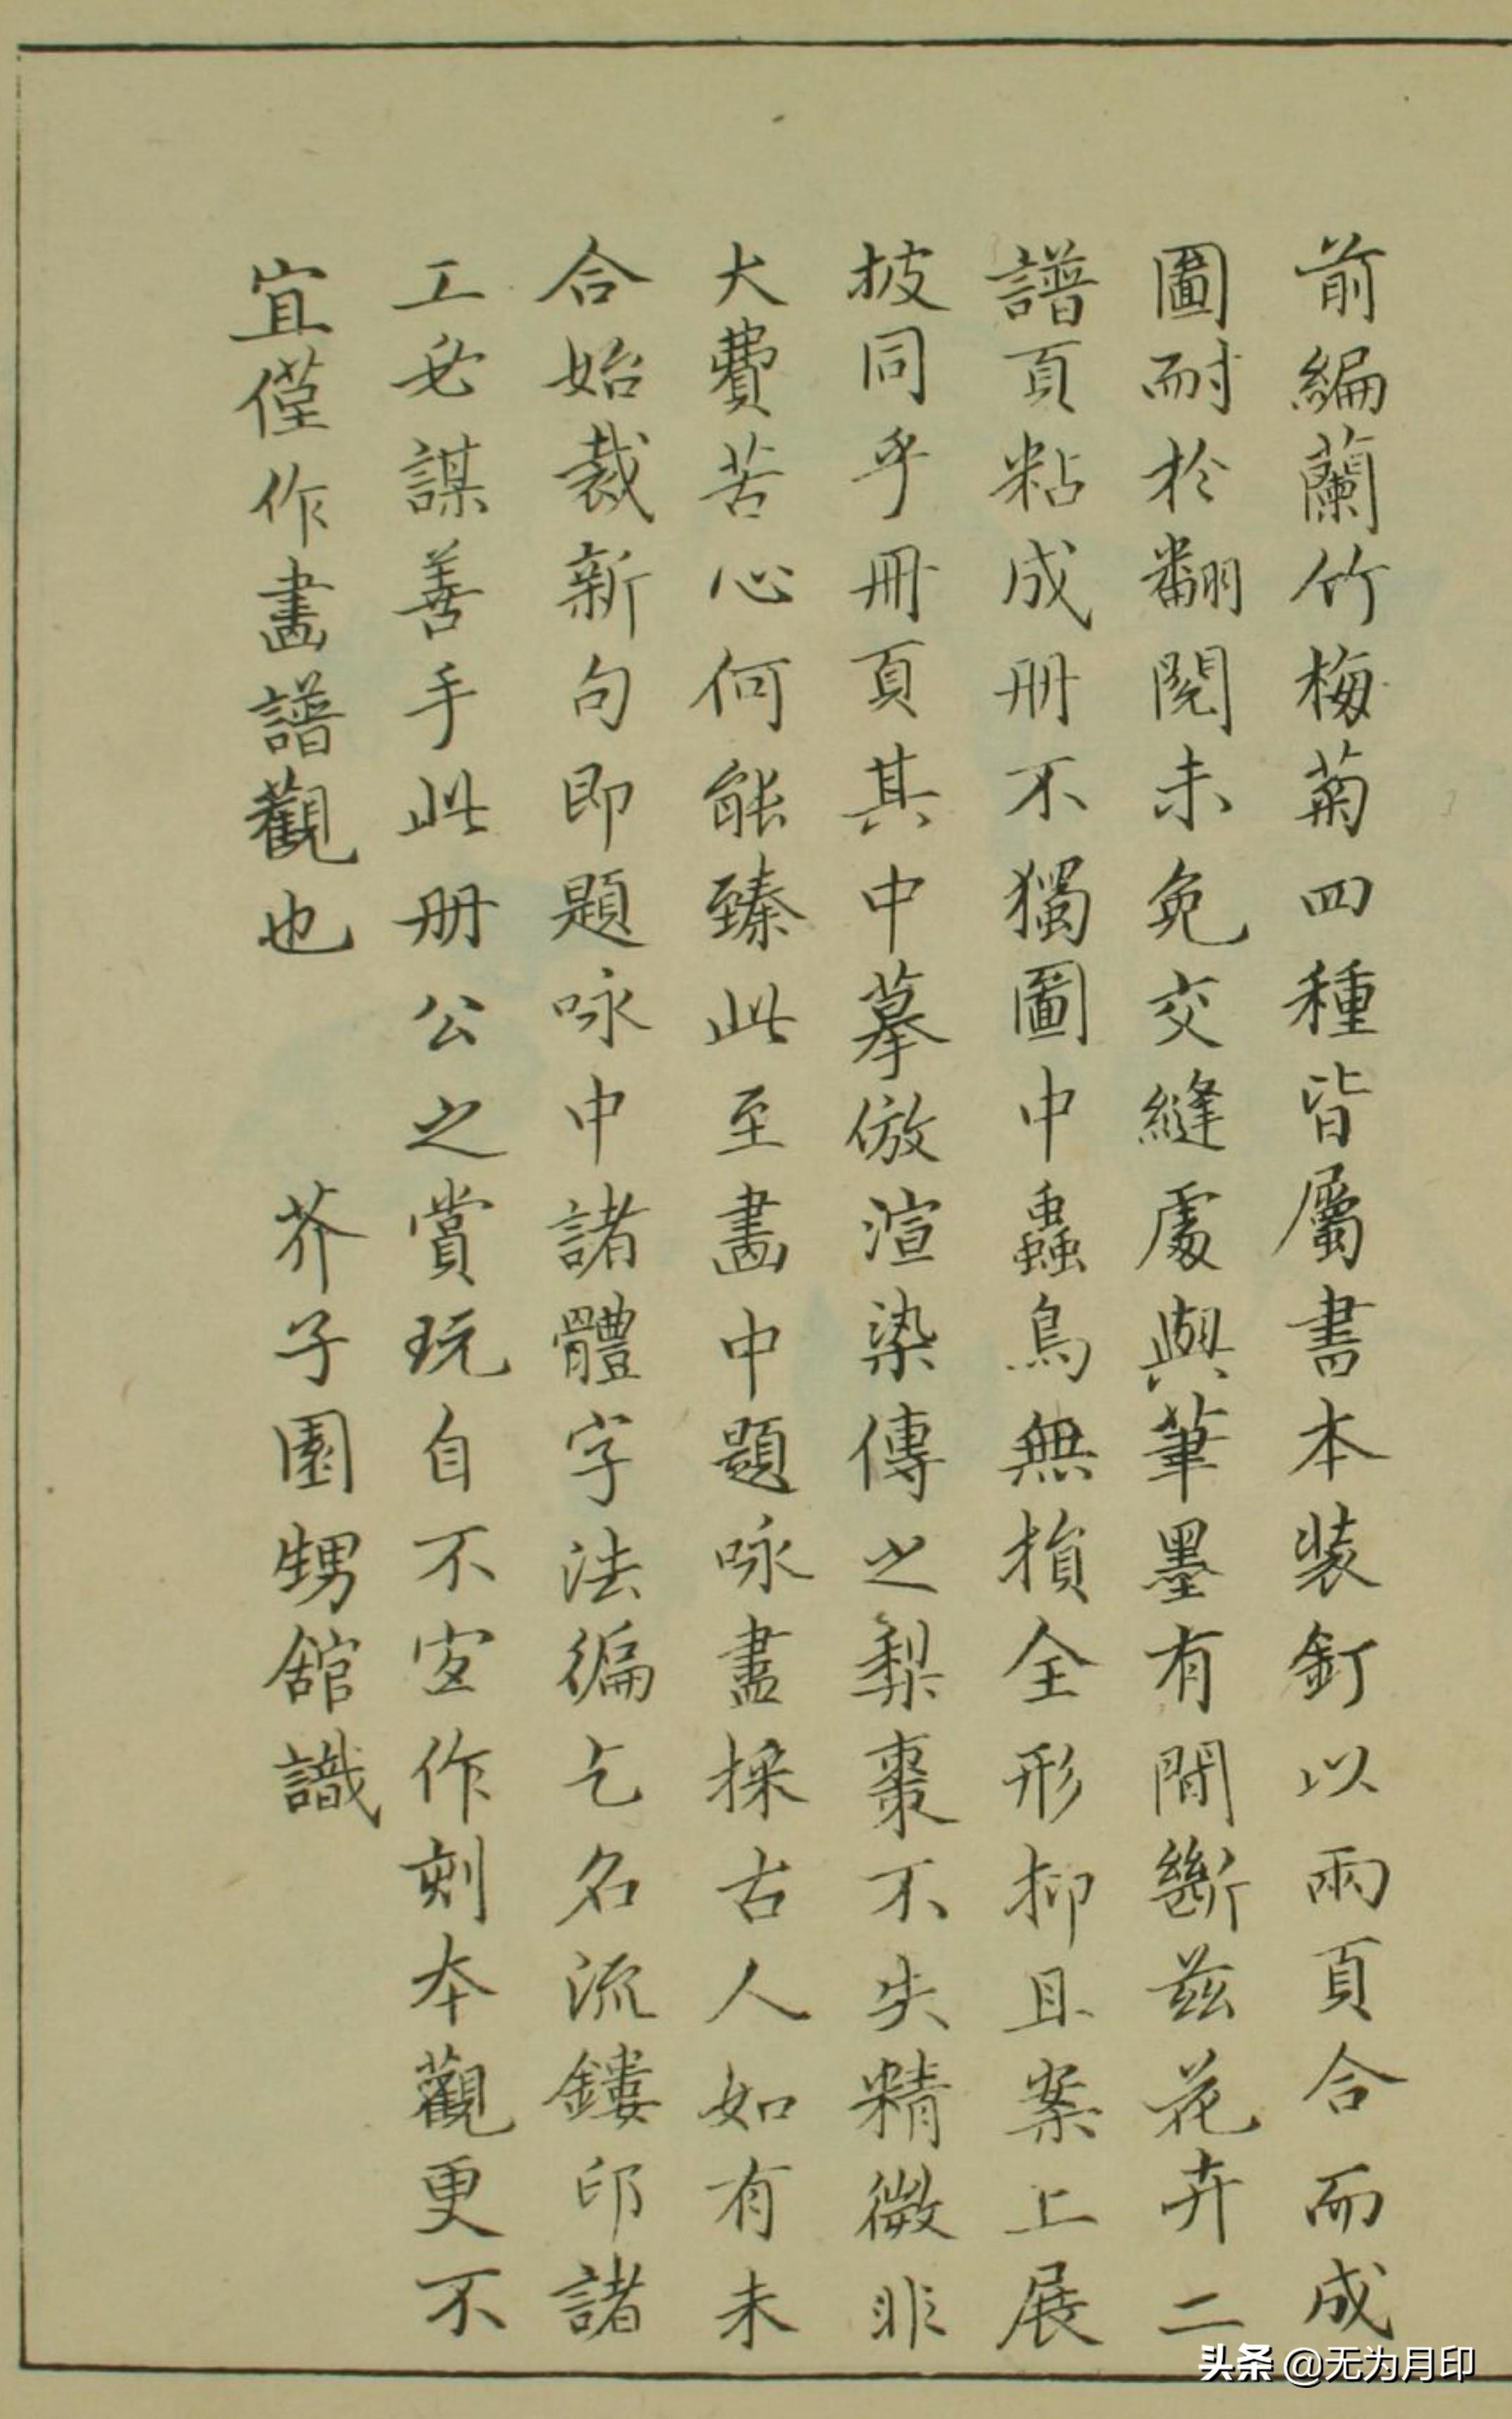 前編蘭竹梅菊四種皆屬書本装釘以兩頁合而成
圖耐於翻閱未免交縫處與筆墨有間斷兹花卉二
譜頁粘成册不獨圖中蟲鳥無損全形抑且案上展
披同乎冊頁其中摹倣渲染傳之梨棗不失精微非
大費苦心何能臻此至畵中題咏盡採古人如有未
合始裁新句即題咏中諸體字法徧乞名流鏤印諸
工必謀善手此册公之賞玩自不宜作刻本觀更不
宜僅作畵譜觀也 芥子園甥舘識
头条 @无为月印